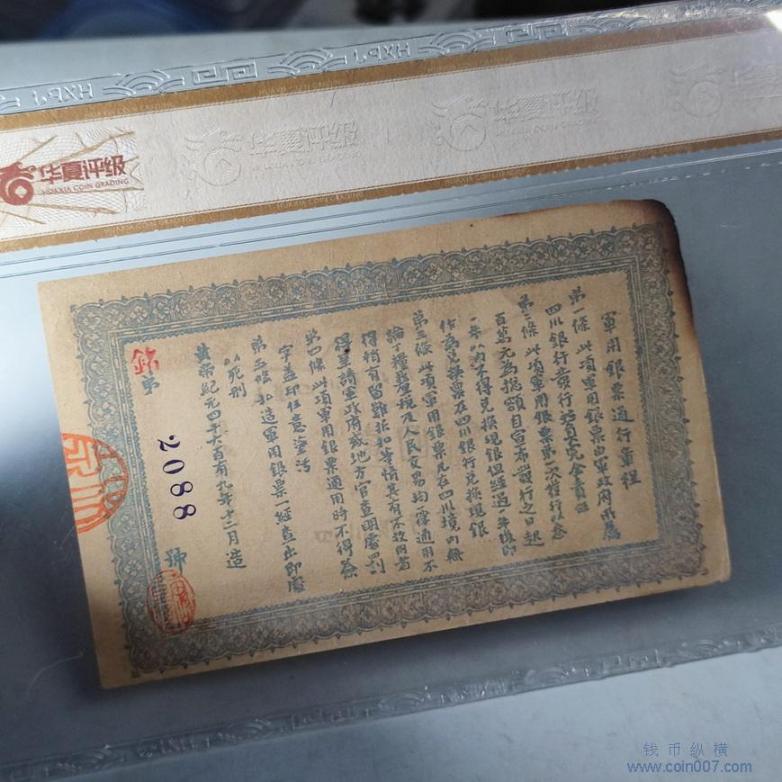 HXPJ
HXPJ
华夏评级
HUAXIA COIN GRADING
华夏评级
軍用銀票通行章程
第一條此項軍用銀票由軍政府所屬
四川銀行發行擔負完全責任
第二條此項軍用銀票第一次發行以叁
百萬元為總額自宣布發行之日起
一年以內不得兌換現銀但經過一年後即
作為兌換票在四川銀行兌換現銀
第三條此項軍用銀票凡在四川境內無
論丁糧釐稅及人民交易均一律通用不
得稍有留難折扣等情其有不放用者
得呈請軍政府或地方官查明處罰
第四條此項軍用銀票通用時不得簽
字蓋印任意塗污
第五條私造軍用銀票一經查出即處
以死刑
黃帝紀元四千六百有九年十二月造
第
2088
號
钱币纵横
www.coin007.com